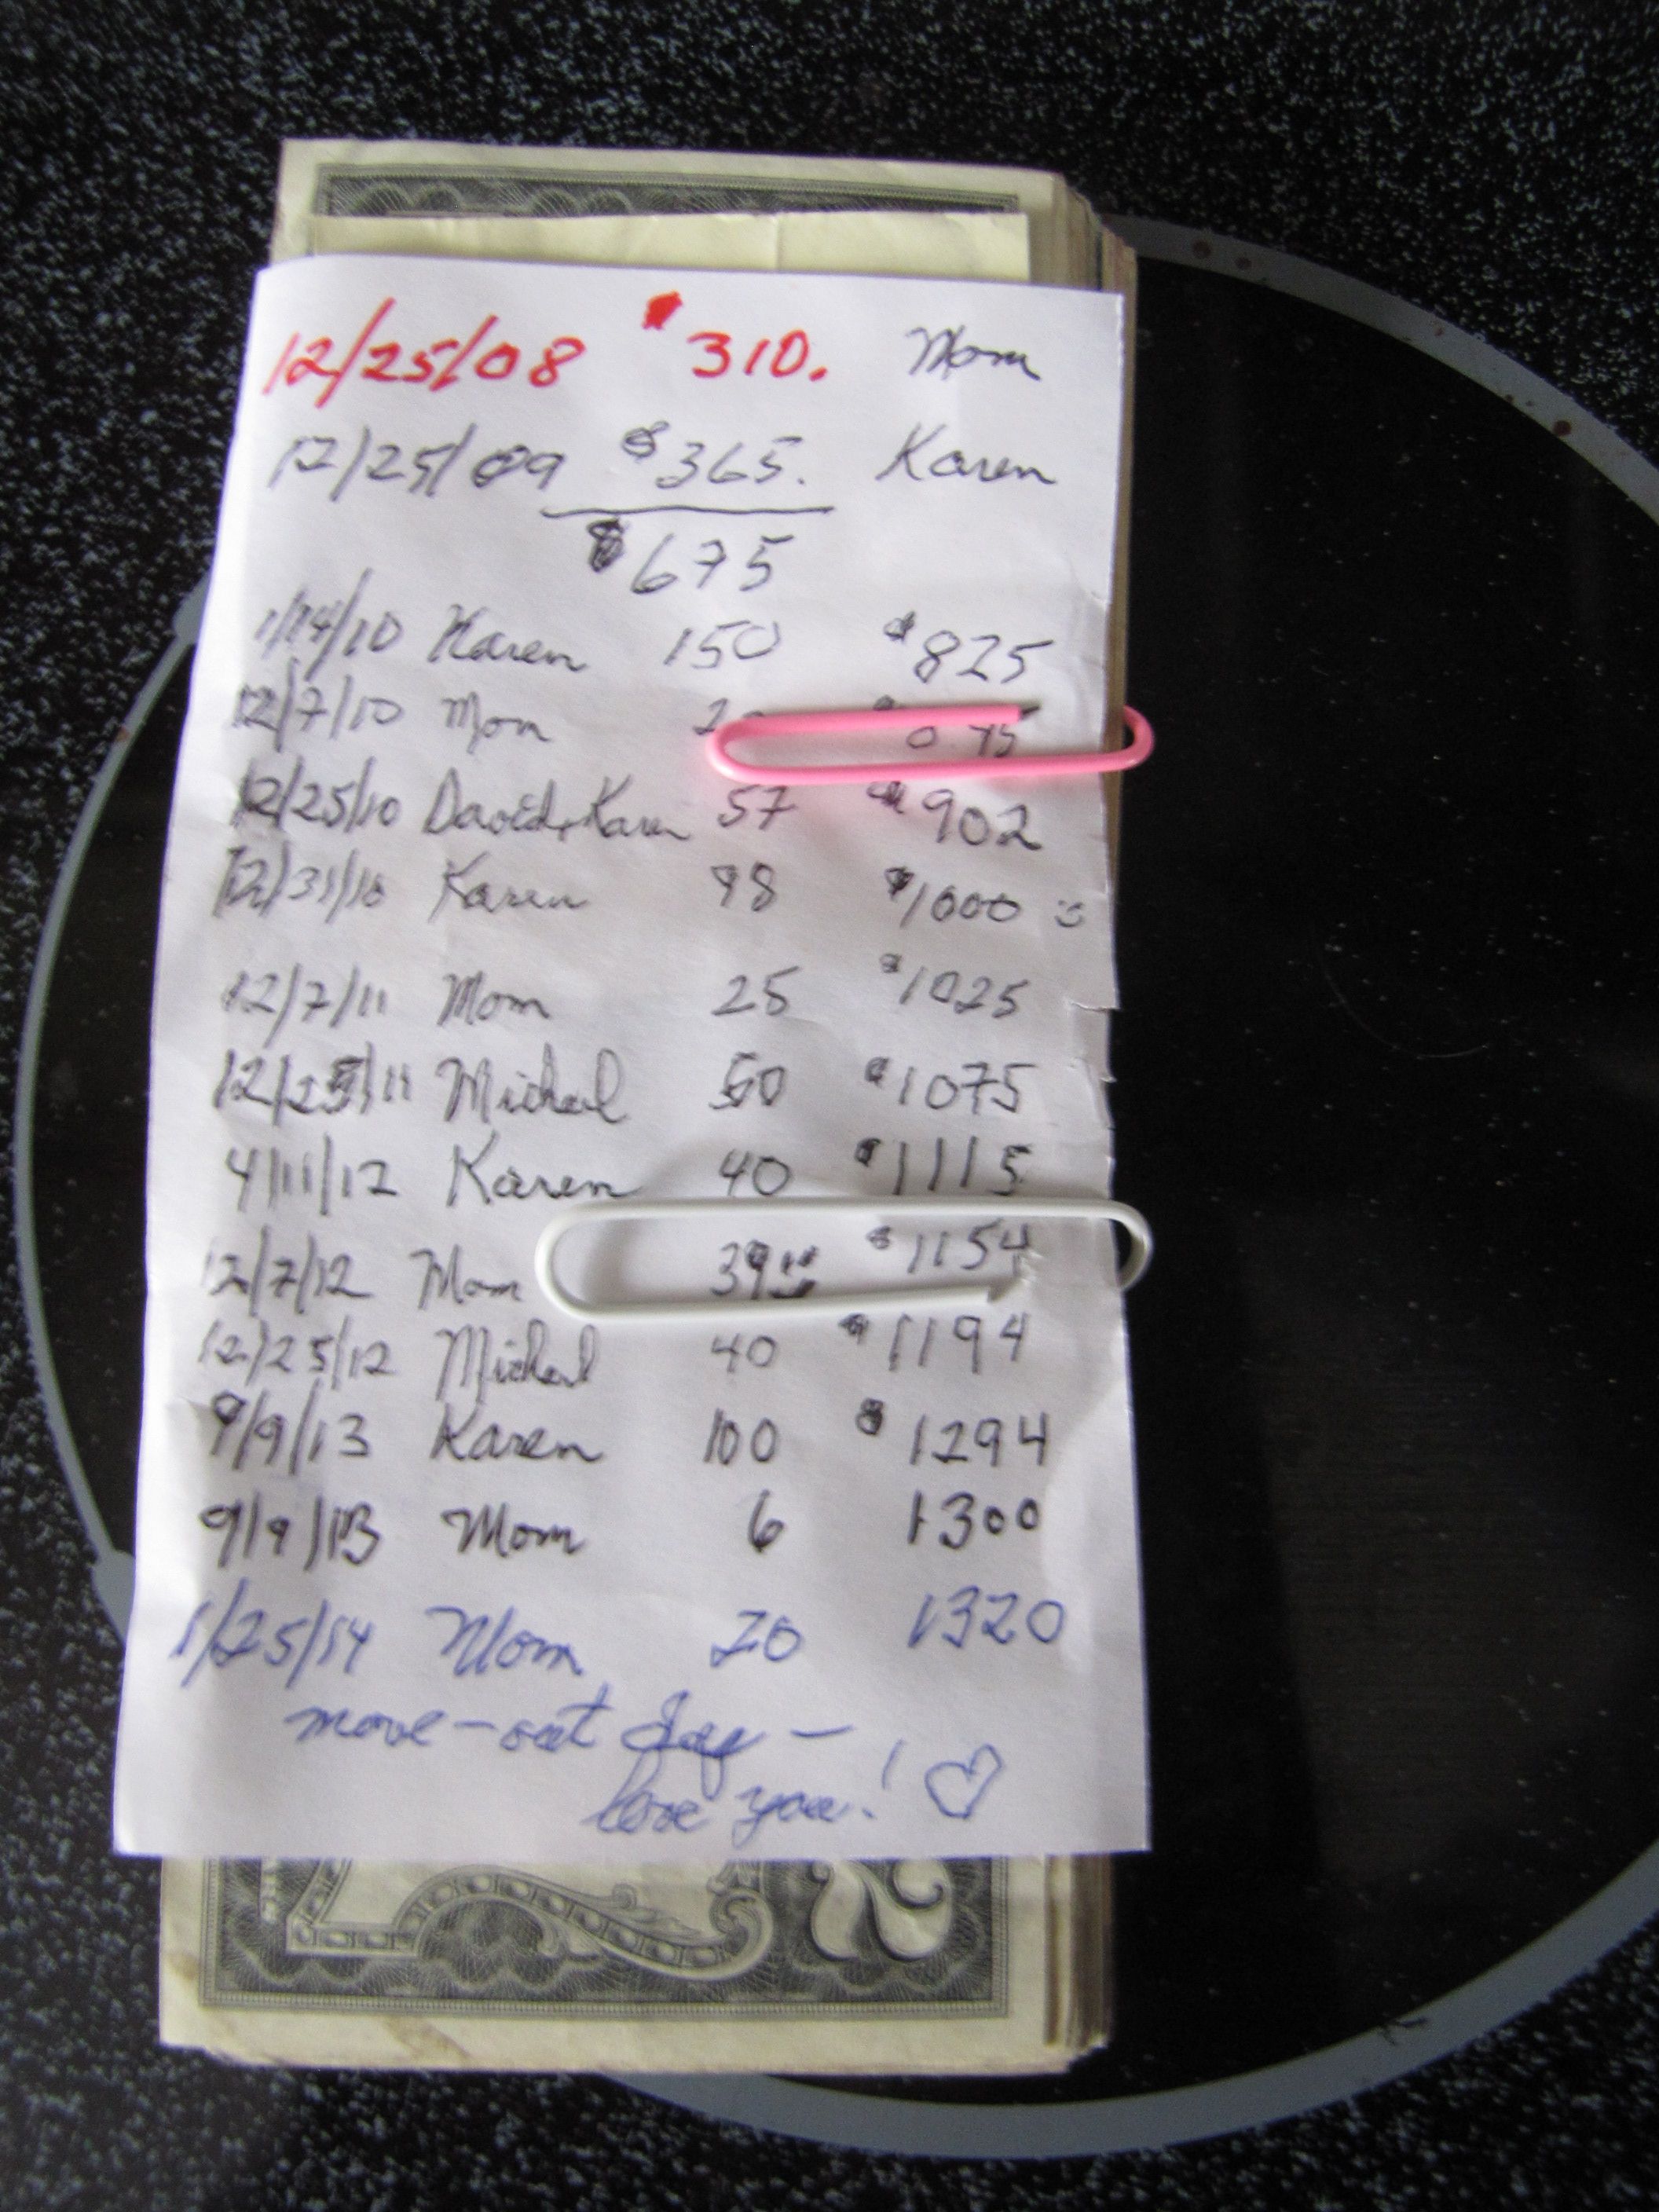 12/25/08 $310. Mom
12/25/09 $365. Karen
$675
1/14/10 Karen 150 $825
12/7/10 Mom
12/25/10 David + Karen 57 $902
12/31/10 Karen 98 $1000 :)
12/7/11 Mom 25 $1025
12/25/11 Michael 50 $1075
4/11/12 Karen 40 $1115
12/7/12 Mom 39 $1154
12/25/12 Michael 40 $1194
9/9/13 Karen 100 $1294
9/9/13 Mom 6 1300
1/25/14 Mom 20 1320
move-out day -
love you! ♡